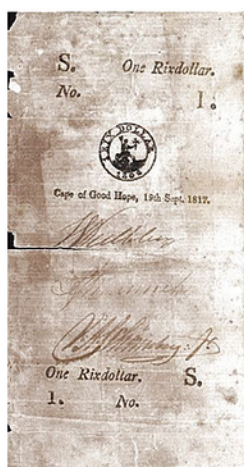 S. One Rixdollar.
No. 1.
RIX DOLLAR
1808
Cape of Good Hope, 19th Sept. 1817.
One Rixdollar. S.
1. No.